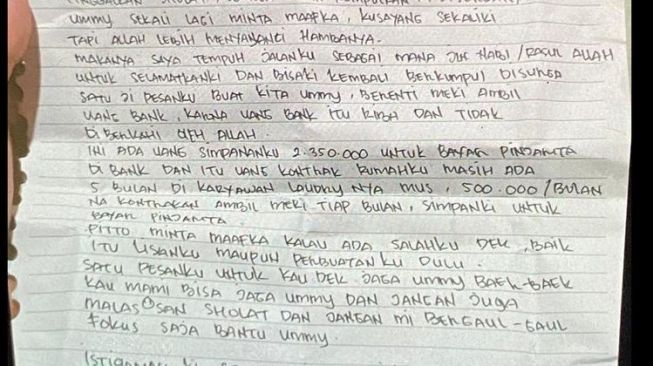 UMMY SEKALI LAGI MINTA MAAFKA, KUSAYANG SEKALIKI
TAPI ALLAH LEBIH MENYAYANGI HAMBANYA.
MAKANYA SAYA TEMPUH JALANKU SEBAGAI MANA NABI / RASUL ALLAH
UNTUK SELAMATKANKI DAN BISAKI KEMBALI BERKUMPUL DISURGA
SATU JI PESANKU BUAT KITA UMMY, BERENTI MEKI AMBIL
UANG BANK, KARENA UANG BANK ITU RIBA DAN TIDAK
DIBERKAHI OLEH ALLAH.
INI ADA UANG SIMPANANKU 2.350.000 UNTUK BAYAR PINJAMTA
DI BANK DAN ITU UANG KONTRAK RUMAHKU MASIH ADA
5 BULAN DI KARYAWAN LAUDRY NYA MUS, 500.000/BULAN
NA KONTRAKAN AMBIL MEKI TIAP BULAN, SIMPANKI UNTUK
BAYAR PINJAMTA.
FITTO MINTA MAAFKA KALAU ADA SALAHKU DEK, BAIK
ITU LISANKU MAUPUN PERBUATANKU DULU.
SATU PESANKU UNTUK KAU DEK JAGA UMMY BAEK-BAEK
KAU MAMI BISA JAGA UMMY DAN JANGAN JUGA
MALAS SAN SHOLAT DAN JANGAN MI BERGAUL-GAUL
FOKUS SAJA BANTU UMMY.